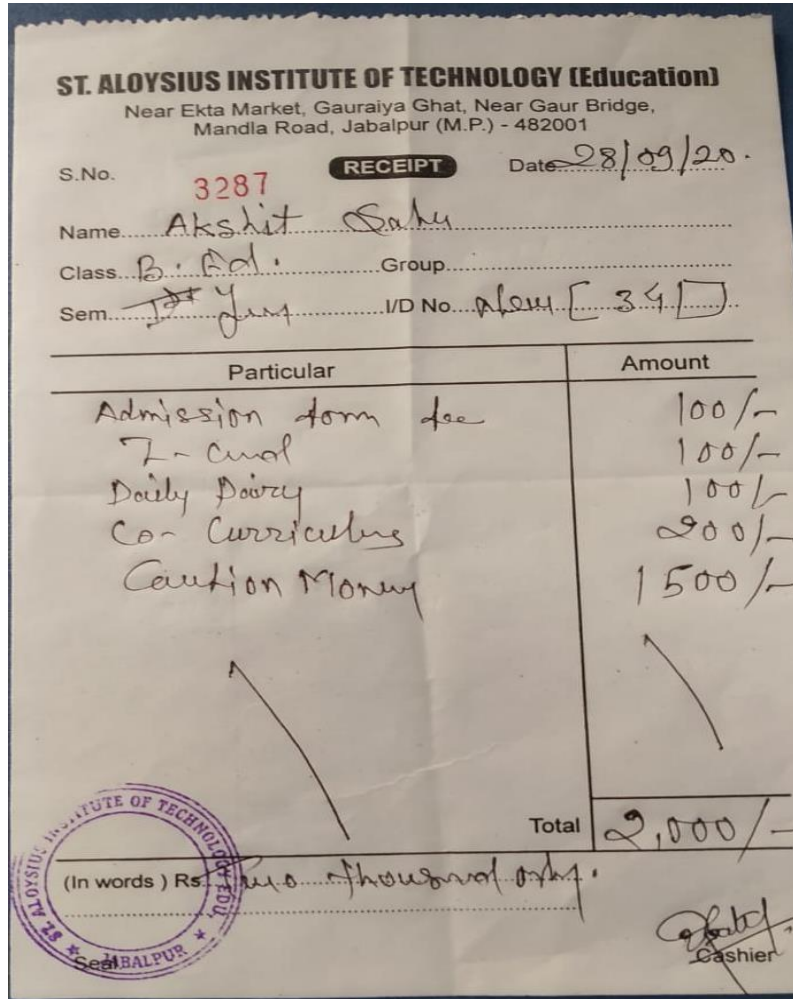 ST. ALOYSIUS INSTITUTE OF TECHNOLOGY (Education)
Near Ekta Market, Gauraiya Ghat, Near Gaur Bridge,
Mandla Road, Jabalpur (M.P.) - 482001
S.No. 3287 RECEIPT Date 28/09/20.
Name Akshit Sahu
Class B. Ed. Group
Sem Ist Year I/D No. New [34]
Particular Amount
Admission form fee 100/-
I-Card 100/-
Daily Dairy 100/-
Co-Curriculus 200/-
Caution Money 1500/-
Total 2,000/-
(In words) Rs. Two thousand only.
ST. ALOYSIUS INSTITUTE OF TECHNOLOGY EDU. JABALPUR
Seal Cashier